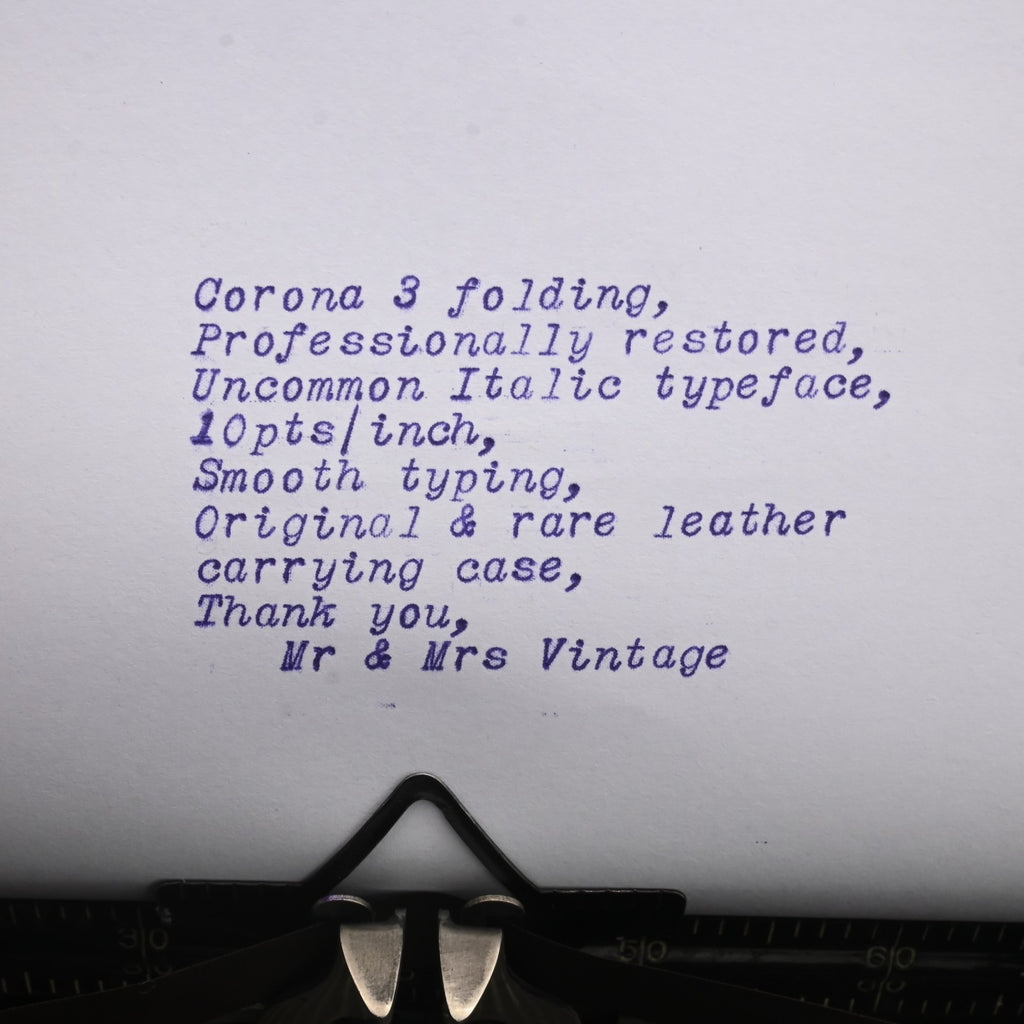 Corona 3 folding,
Professionally restored,
Uncommon Italic typeface,
10pts/inch,
Smooth typing,
Original & rare leather
carrying case,
Thank you,
Mr & Mrs Vintage
30 50 60